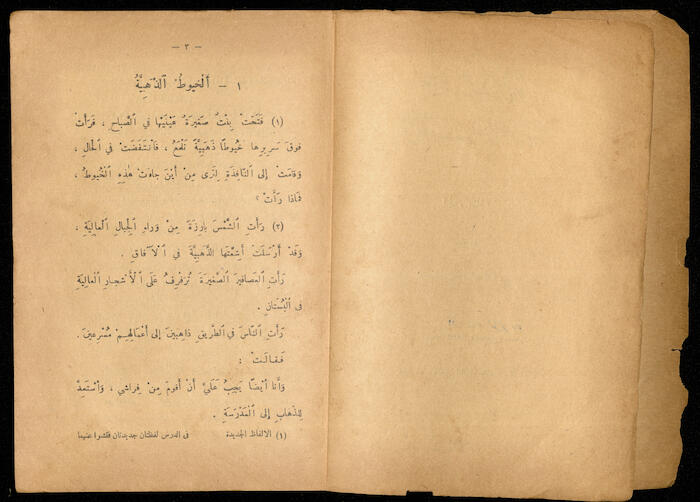 — ٣ —
١ - اَلْخُيوطُ الذَّهَبِيَّةُ
(١) فَتَحَتْ بِنْتٌ صَغِيرَةٌ عَيْنَيْها في الصَّباحِ ، فَرَأَتْ
فوقَ سَريرِها خُيوطًا ذَهَبِيَّةً تَلْمَعُ ، فَانْتَفَضَتْ في الْحالِ ،
وَقامَتْ إلى النّافِذَةِ لِتَرَى مِنْ أَيْنَ جاءَتْ هٰذِهِ الْخُيوطُ ،
فَماذا رَأَتْ ؟
(٢) رَأَتِ الشَّمْسَ بارِزَةً مِنْ وَراءِ الْجِبالِ الْعالِيَةِ ،
وَقَدْ أَرْسَلَتْ أَشِعَّتَها الذَّهَبِيَّةَ في الْآفاقِ .
رَأَتِ الْعَصافيرَ الصَّغيرَةَ تُرَفْرِفُ عَلَى الْأَشْجارِ الْعالِيَةِ
في الْبُسْتانِ .
رَأَتِ النّاسَ في الطَّريقِ ذاهِبينَ إلى أَعْمالِهِمْ مُسْرِعينَ .
فَقالَتْ :
وَأَنا أَيْضًا يَجِبُ عَلَيَّ أَنْ أَقومَ مِنْ فِراشي ، وَأَسْتَعِدَّ
لِلذَّهابِ إلى الْمَدْرَسَةِ .
(١) الالفاظ الجديدة في الدرس لفظتان جديدتان فتشوا عنهما